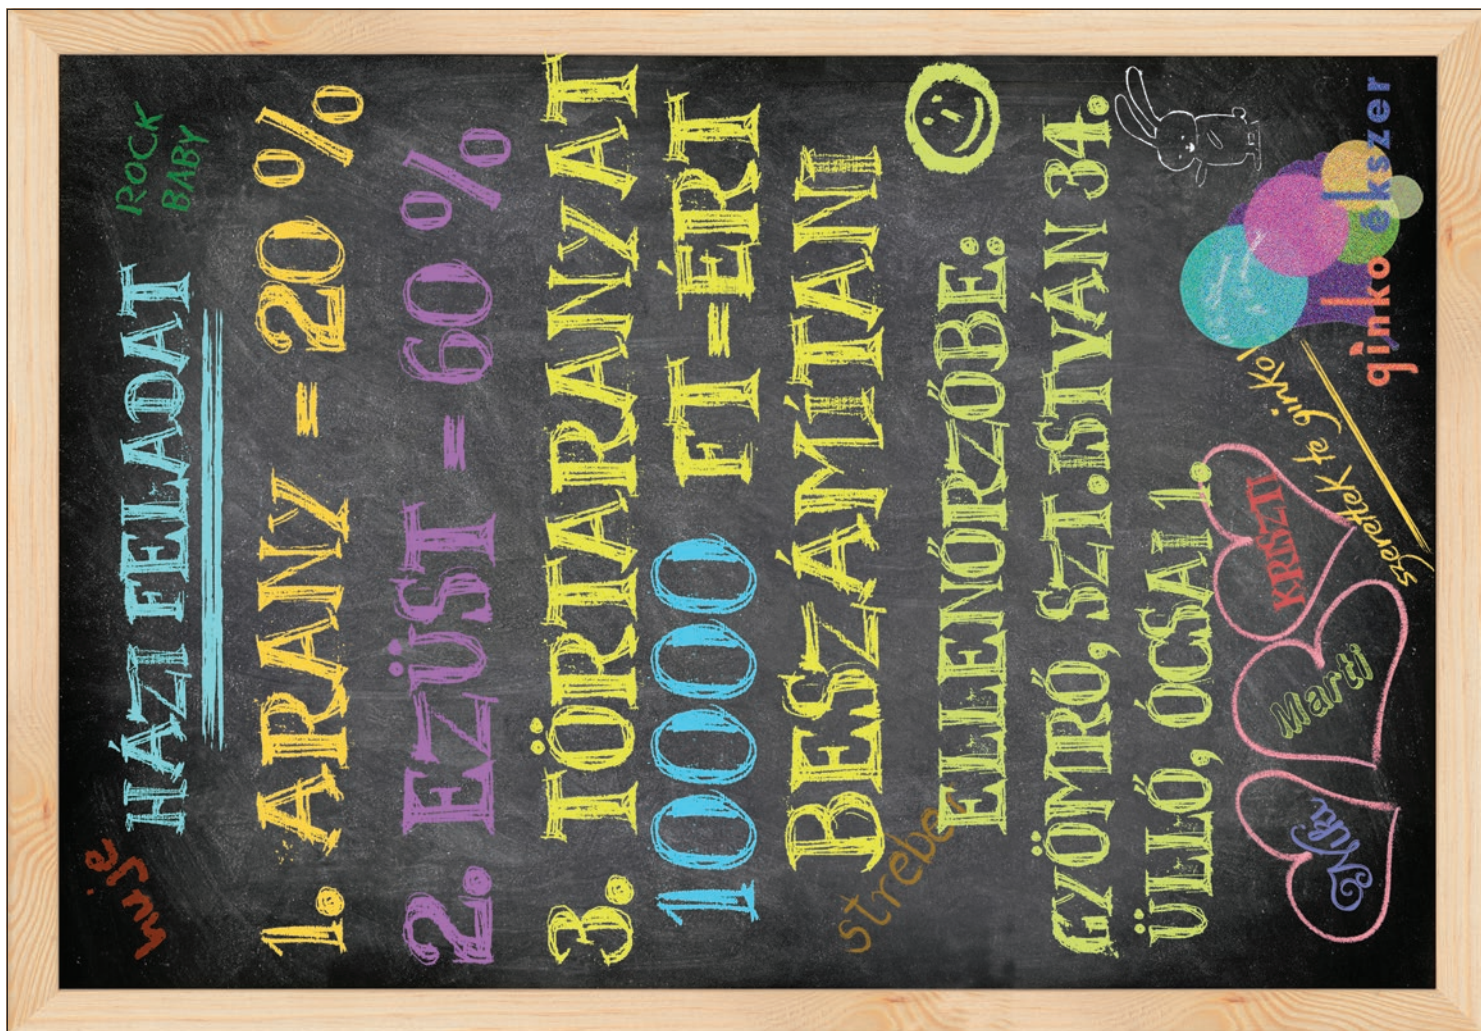 ROCK
BABY
HÁZI FELADAT
1. ARANY = 20 %
2. EZÜST = 60 %
3. TÖRTARANYAT
10000 FT-ÉRT
BESZÁMÍTANI
streber
ELLENŐRZŐBE:
GYÖMRŐ, SZT.ISTVÁN 34.
ÜLLŐ, ÓCSAI 1.
Niki
Marti
KRISZTI
szeretlek te ginkó!
ginko ékszer